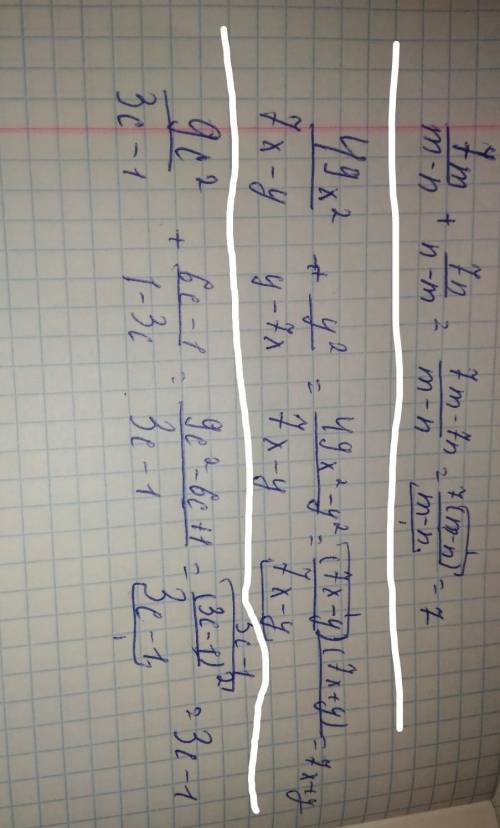 7m/(m-n) + 7n/(n-m) = (7m-7n)/(m-n) = 7(m-n)/(m-n) = 7
49x²/(7x-y) + y²/(y-7x) = (49x²-y²)/(7x-y) = (7x-y)(7x+y)/(7x-y) = 7x+y
9c²/(3c-1) + (6c-1)/(1-3c) = (9c²-6c+1)/(3c-1) = (3c-1)²/(3c-1) = 3c-1
3c-1